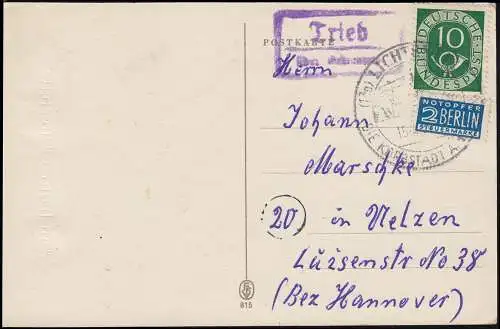 Trieb
POSTKARTE
DEUTSCHE
BUNDESPOST
10
NOTOPFER
2 BERLIN
STEUERMARKE
LICHT
DIE KORBSTADT A
Herrn
Johann
Marschke
20
in Uelzen
Luisenstr No 38
(Bez Hannover)
815